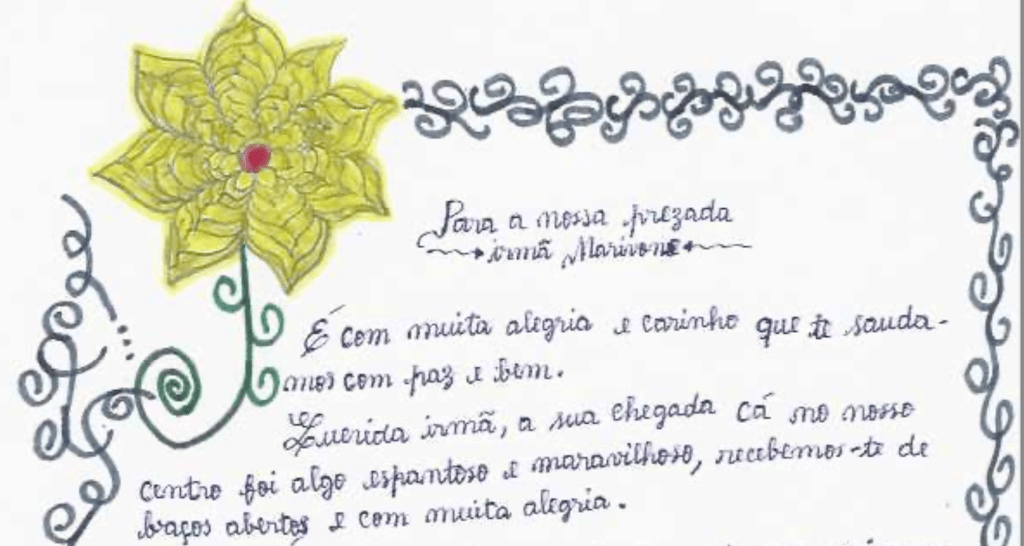 Para a nossa prezada
irmã Marivone
É com muita alegria e carinho que te sauda-
mos com paz e bem.
Querida irmã, a sua chegada cá no nosso
centro foi algo espantoso e maravilhoso, recebemos-te de
braços abertos e com muita alegria.